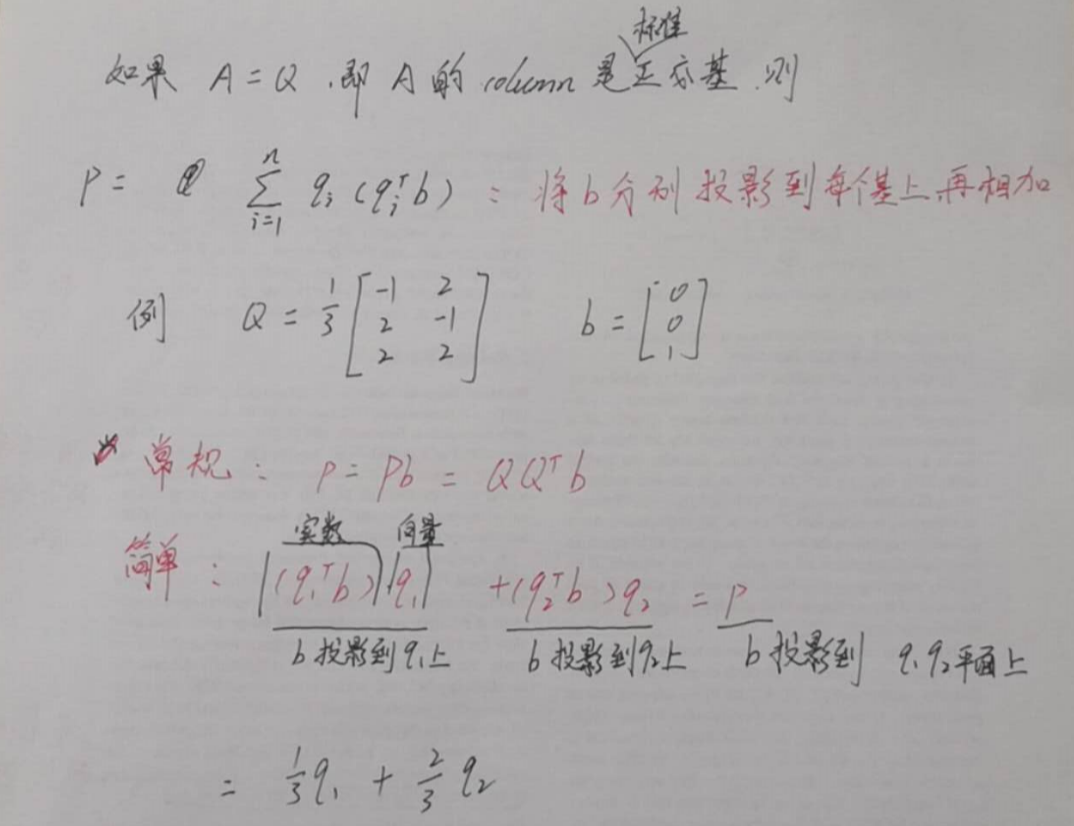 标准
如果 A = Q ，即 A 的 column 是正交基，则
P = Σ_{i=1}^{n} q_i (q_i^T b) ： 将 b 分别投影到每个基上，再相加
例 Q = 1/3 [ -1 2 ; 2 -1 ; 2 2 ] b = [ 0 ; 0 ; 1 ]
常规 ： p = Pb = QQ^T b
实数 向量
简单 ： (q_1^T b) q_1 + (q_2^T b) q_2 = p
b 投影到 q_1 上 b 投影到 q_2 上 b 投影到 q_1 q_2 平面上
= 1/3 q_1 + 2/3 q_2